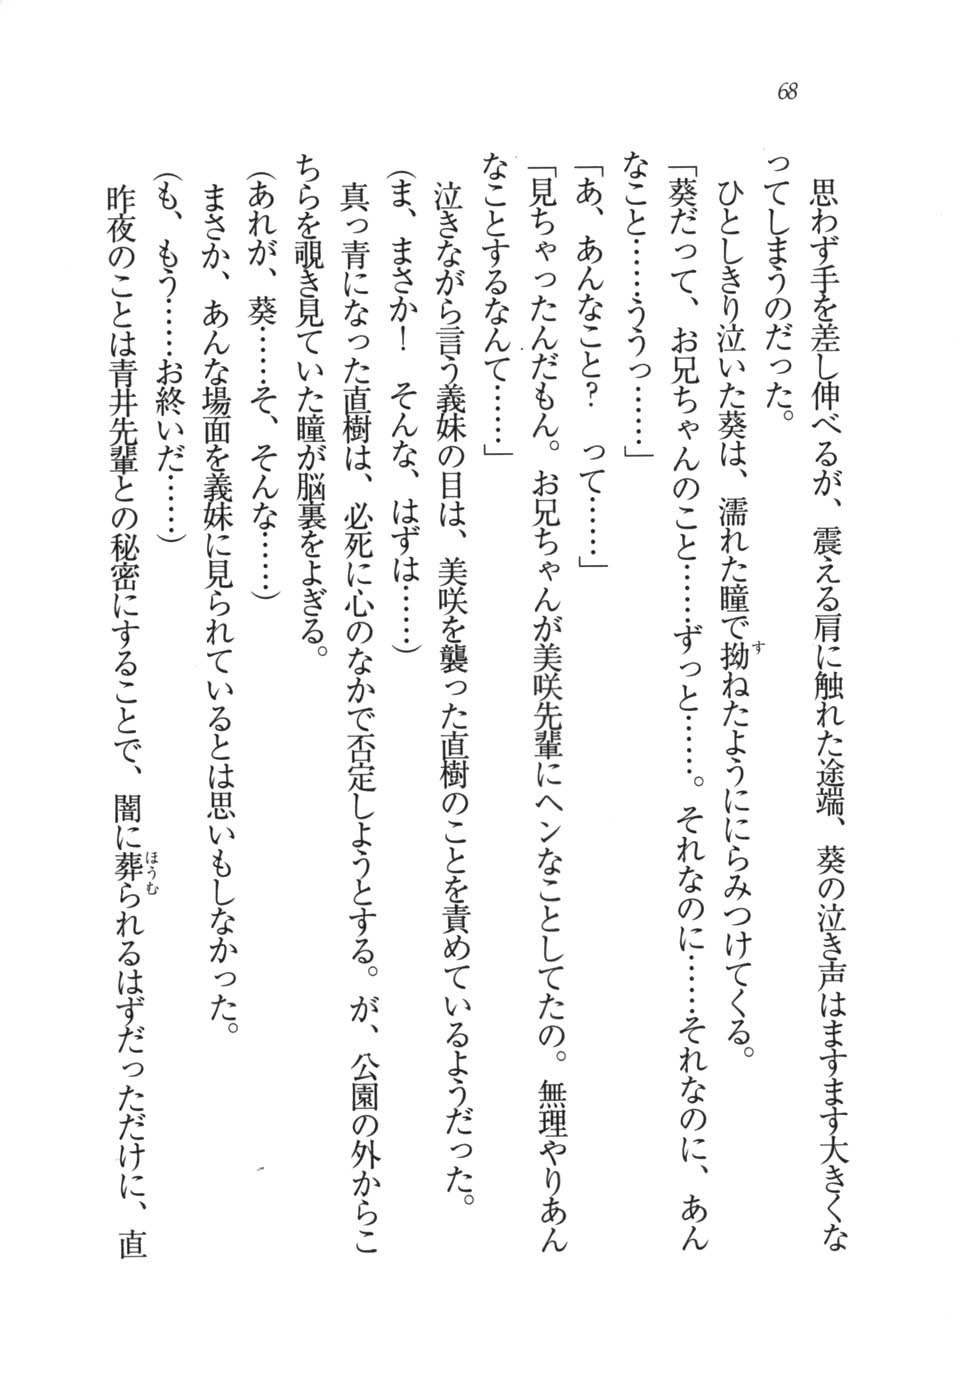 68
思わず手を差し伸べるが、震える肩に触れた途端、葵の泣き声はますます大きくな
ってしまうのだった。
ひとしきり泣いた葵は、濡れた瞳で拗ねたようににらみつけてくる。
す
「葵だって、お兄ちゃんのこと……ずっと……。それなのに……それなのに、あん
なこと……ううっ……」
「あ、あんなこと？　って……」
「見ちゃったんだもん。お兄ちゃんが美咲先輩にヘンなことしてたの。無理やりあん
なことするなんて……」
泣きながら言う義妹の目は、美咲を襲った直樹のことを責めているようだった。
（ま、まさか！　そんな、はずは……）
真っ青になった直樹は、必死に心のなかで否定しようとする。が、公園の外からこ
ちらを覗き見ていた瞳が脳裏をよぎる。
（あれが、葵……そ、そんな……）
まさか、あんな場面を義妹に見られているとは思いもしなかった。
（も、もう……お終いだ……）
昨夜のことは青井先輩との秘密にすることで、闇に葬られるはずだっただけに、直
ほうむ